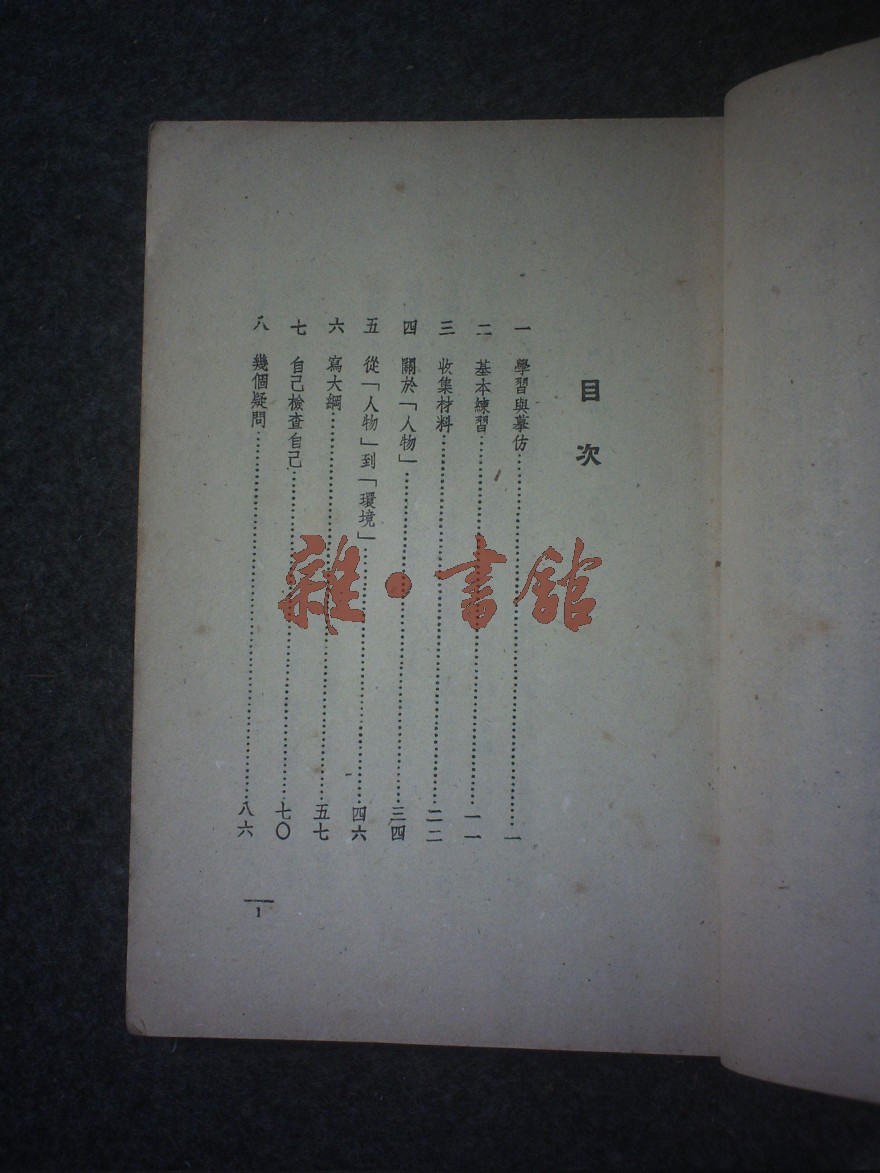 目次
一 學習與摹仿……一
二 基本練習……一一
三 收集材料……二二
四 關於「人物」……三四
五 從「人物」到「環境」……四六
六 寫大綱……五七
七 自己檢查自己……七〇
八 幾個疑問……八六
1
雜·書館